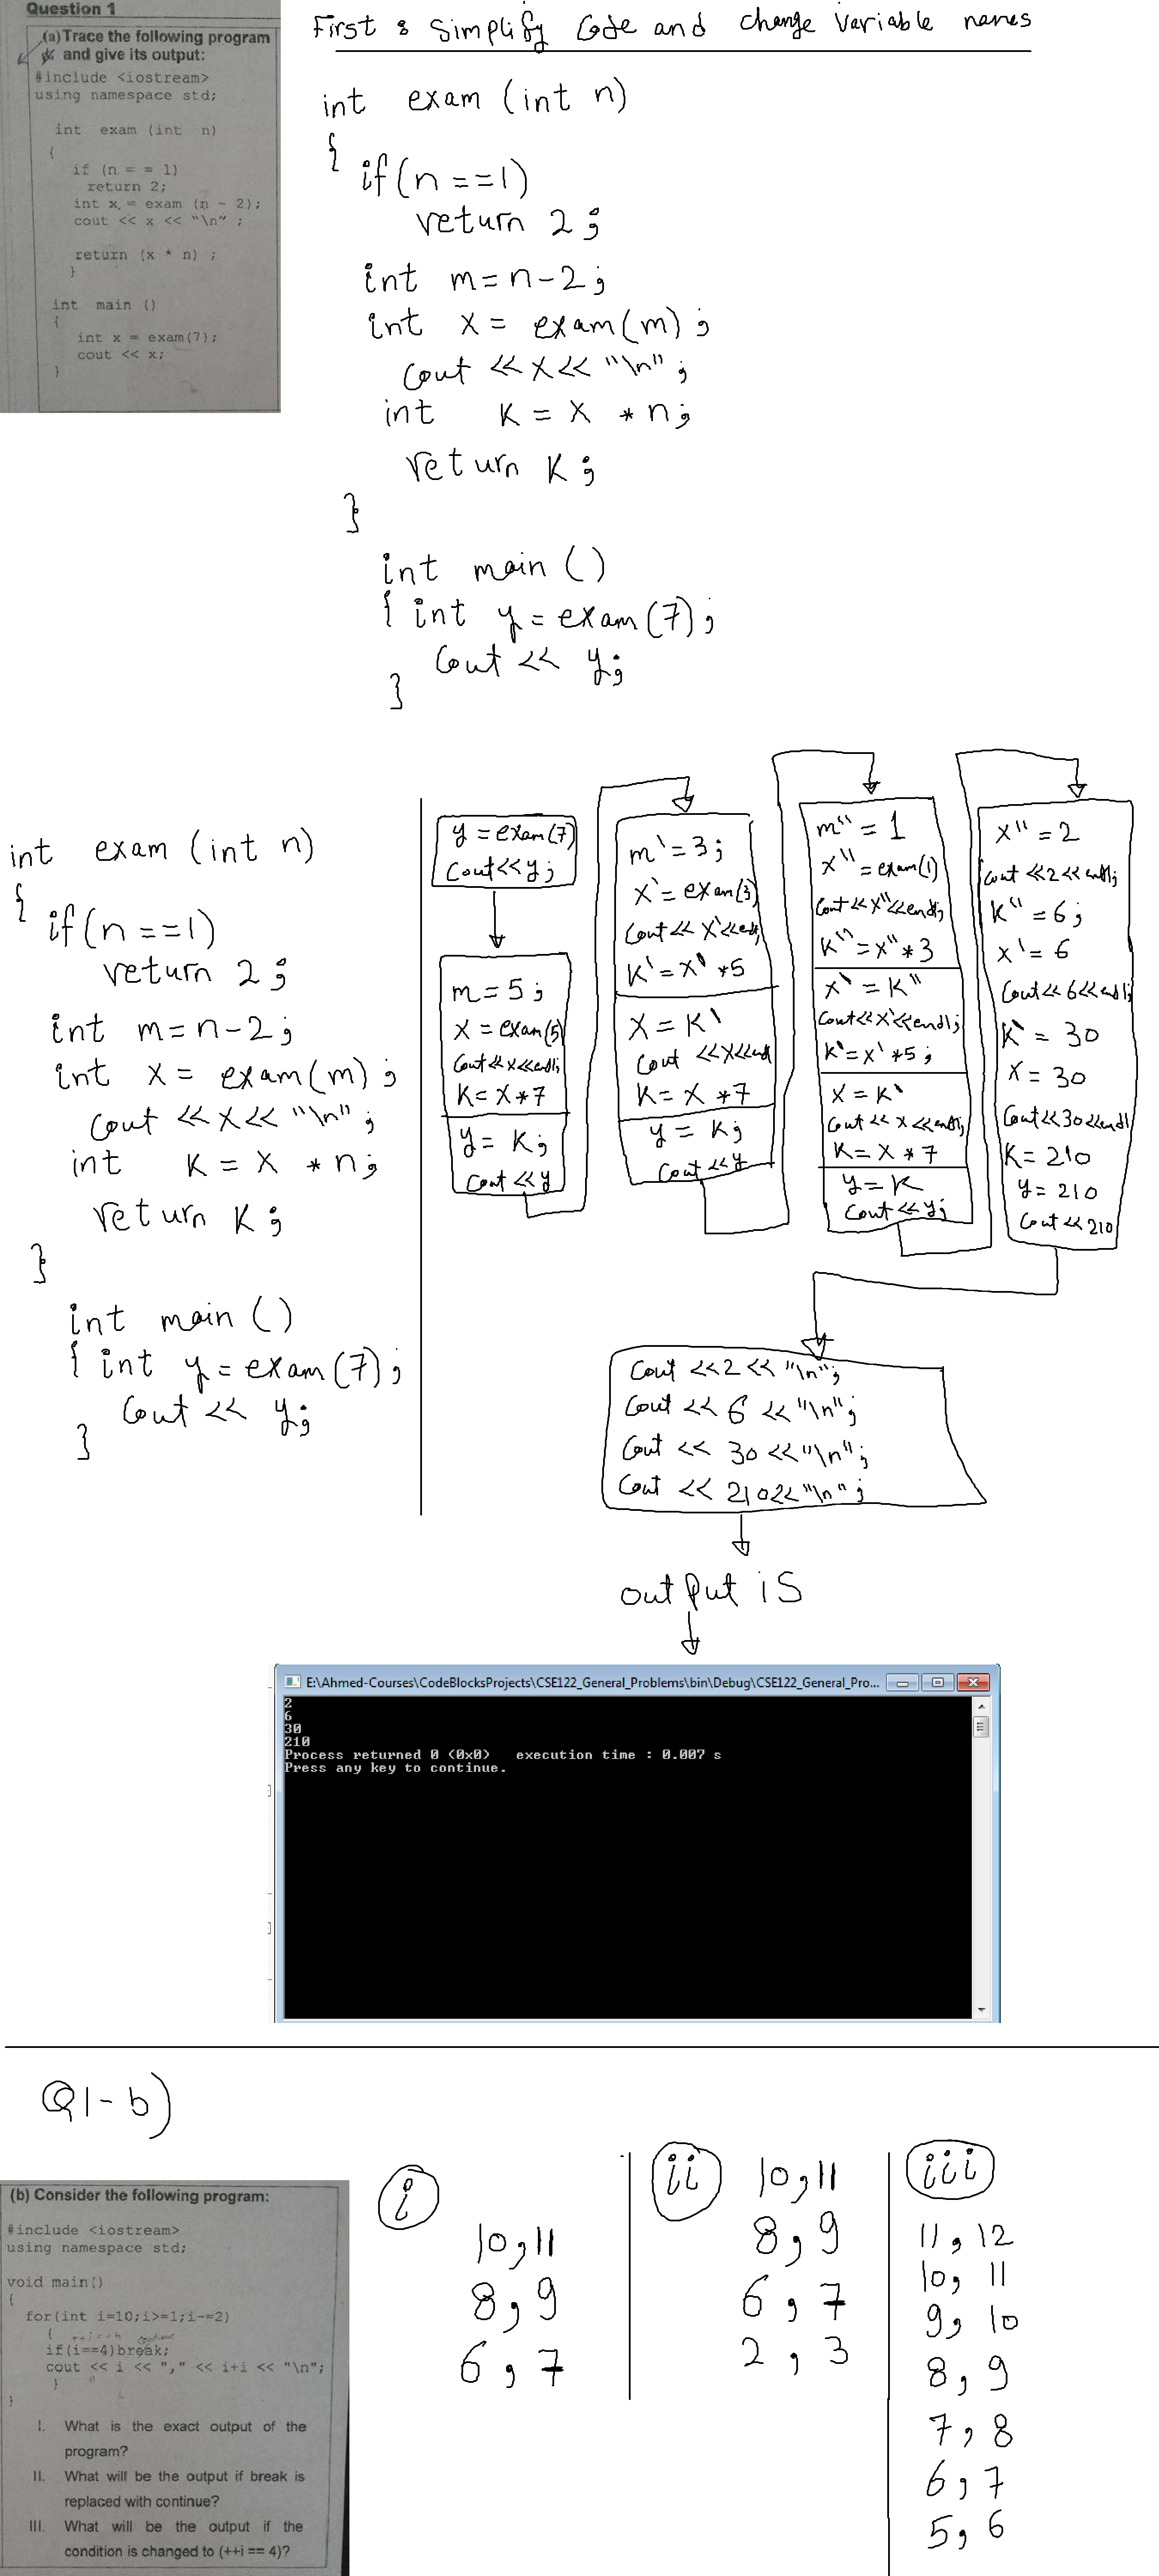 Question 1
(a) Trace the following program
and give its output:
#include <iostream>
using namespace std;
int exam (int n)
{
if (n = = 1)
return 2;
int x = exam (n - 2);
cout << x << "\n" ;
return (x * n) ;
}
int main ()
{
int x = exam(7);
cout << x;
}
First : Simplify Code and change variable names
int exam (int n)
{
if (n ==1)
return 2 ;
int m = n-2 ;
int x = exam(m) ;
Cout << x << "\n" ;
int K = x * n;
return K ;
}
int main ()
{ int y = exam(7) ;
Cout << y;
}
int exam (int n)
{
if (n ==1)
return 2 ;
int m = n-2 ;
int x = exam(m) ;
Cout << x << "\n" ;
int K = x * n;
return K ;
}
int main ()
{ int y = exam(7) ;
Cout << y;
}
y = exam(7)
Cout << y;
m = 5 ;
x = exam(5)
Cout<<x<<endl;
K = x * 7
y = K;
Cout << y
m' = 3 ;
x' = exam(3)
Cout << x'<<endl
K' = x' * 5
x = K'
Cout <<x<<endl
K = x * 7
y = K;
Cout << y
m'' = 1
x'' = exam(1)
Cout << x''<<endl;
K'' = x'' * 3
x' = K''
Cout<<x'<<endl;
K' = x' * 5 ;
x = K'
Cout << x <<endl;
K = x * 7
y = K
Cout << y;
x'' = 2
Cout <<2<<endl;
K'' = 6 ;
x' = 6
Cout<< 6<<endl;
K' = 30
x = 30
Cout<<30<<endl
K = 210
y = 210
Cout << 210
Cout <<2<< "\n";
Cout << 6 << "\n" ;
Cout << 30 <<"\n" ;
Cout << 210<< "\n" ;
output is
E:\Ahmed-Courses\CodeBlocksProjects\CSE122_General_Problems\bin\Debug\CSE122_General_Pro...
2
6
30
210
Process returned 0 (0x0) execution time : 0.007 s
Press any key to continue.
Q1-b)
(b) Consider the following program:
#include <iostream>
using namespace std;
void main()
{
for(int i=10;i>=1;i-=2)
{
if(i==4)break;
cout << i << "," << i+i << "\n";
}
}
I. What is the exact output of the
program?
II. What will be the output if break is
replaced with continue?
III. What will be the output if the
condition is changed to (++i == 4)?
i
10,11
8,9
6,7
ii
10,11
8,9
6,7
2,3
iii
11,12
10,11
9,10
8,9
7,8
6,7
5,6